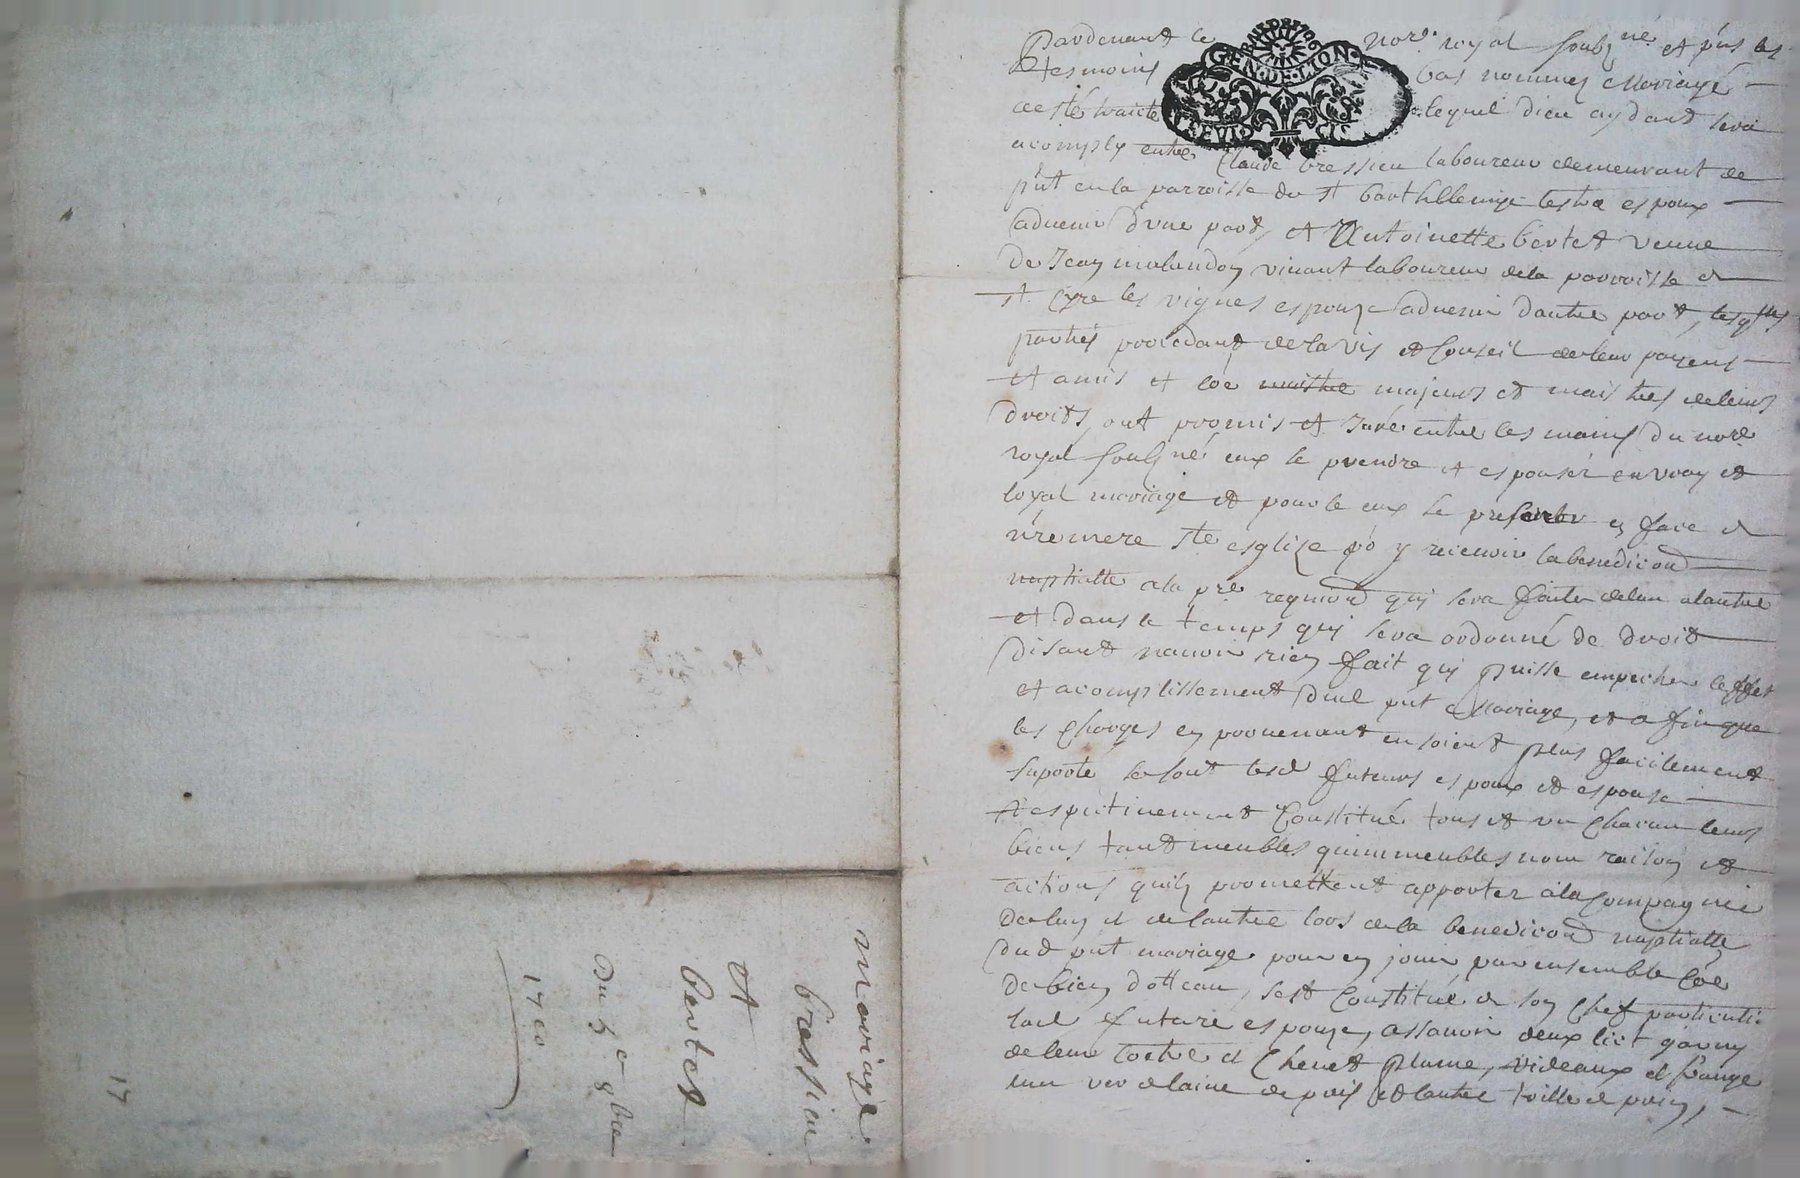 Pardevant le nore royal soubzné et pnt les
tesmoins bas nommez Mariage
a esté traicté lequel dieu aydant sera
acomply entre Claude bressieu laboureur demeurant de
pnt en la parroisse de st barthellemy lestra espoux
advenir d'une part, et Antoinette bertet veuve
de Jean malandon vivant laboureur de la parroisse de
st Cyre les vignes espouze advenir dautre part, lesqlles
parties procedant de lavis et Conseil de leur parens
et amis et Coe maistre majeurs et maistres de leurs
droits, ont promis et Juré entre les mains du nore
royal soubzné eux se prendre et espouser en vray et
loyal mariage et pour le eux se presenter en face de
nre mere ste esglize po y recevoir la benediction
nuptialle a la pre requision quy sera faite de lun a lautre
et dans le temps quy sera ordonné de droit
disant navoir rien fait quy puisse empecher leffet
et acomplissement dud pnt Mariage, et afin que
les Charges en provenant en soient plus facilement
suporte se sont lesd futeurs espoux et espouse
respectivement Constitué tous et un Chacun leurs
biens tant meubles quimmeubles nom raison et
actions quilz promettent apporter a la Compagnie
de lun et de lautre lors de la benediction nuptialle
dud pnt mariage pour en jouir par ensemble Coe
de bien dottean, sest Constitué de son Chef particulie
lad future espouze, assavoir deux lict garny
de leur Coetre et Chevet plume, rideaux et frange
lun ver de laine de pais et lautre toille de pais,
mariage
bressieu
Et
bertet
Du 5e 8bre
1700
17
GEN·DE·LION